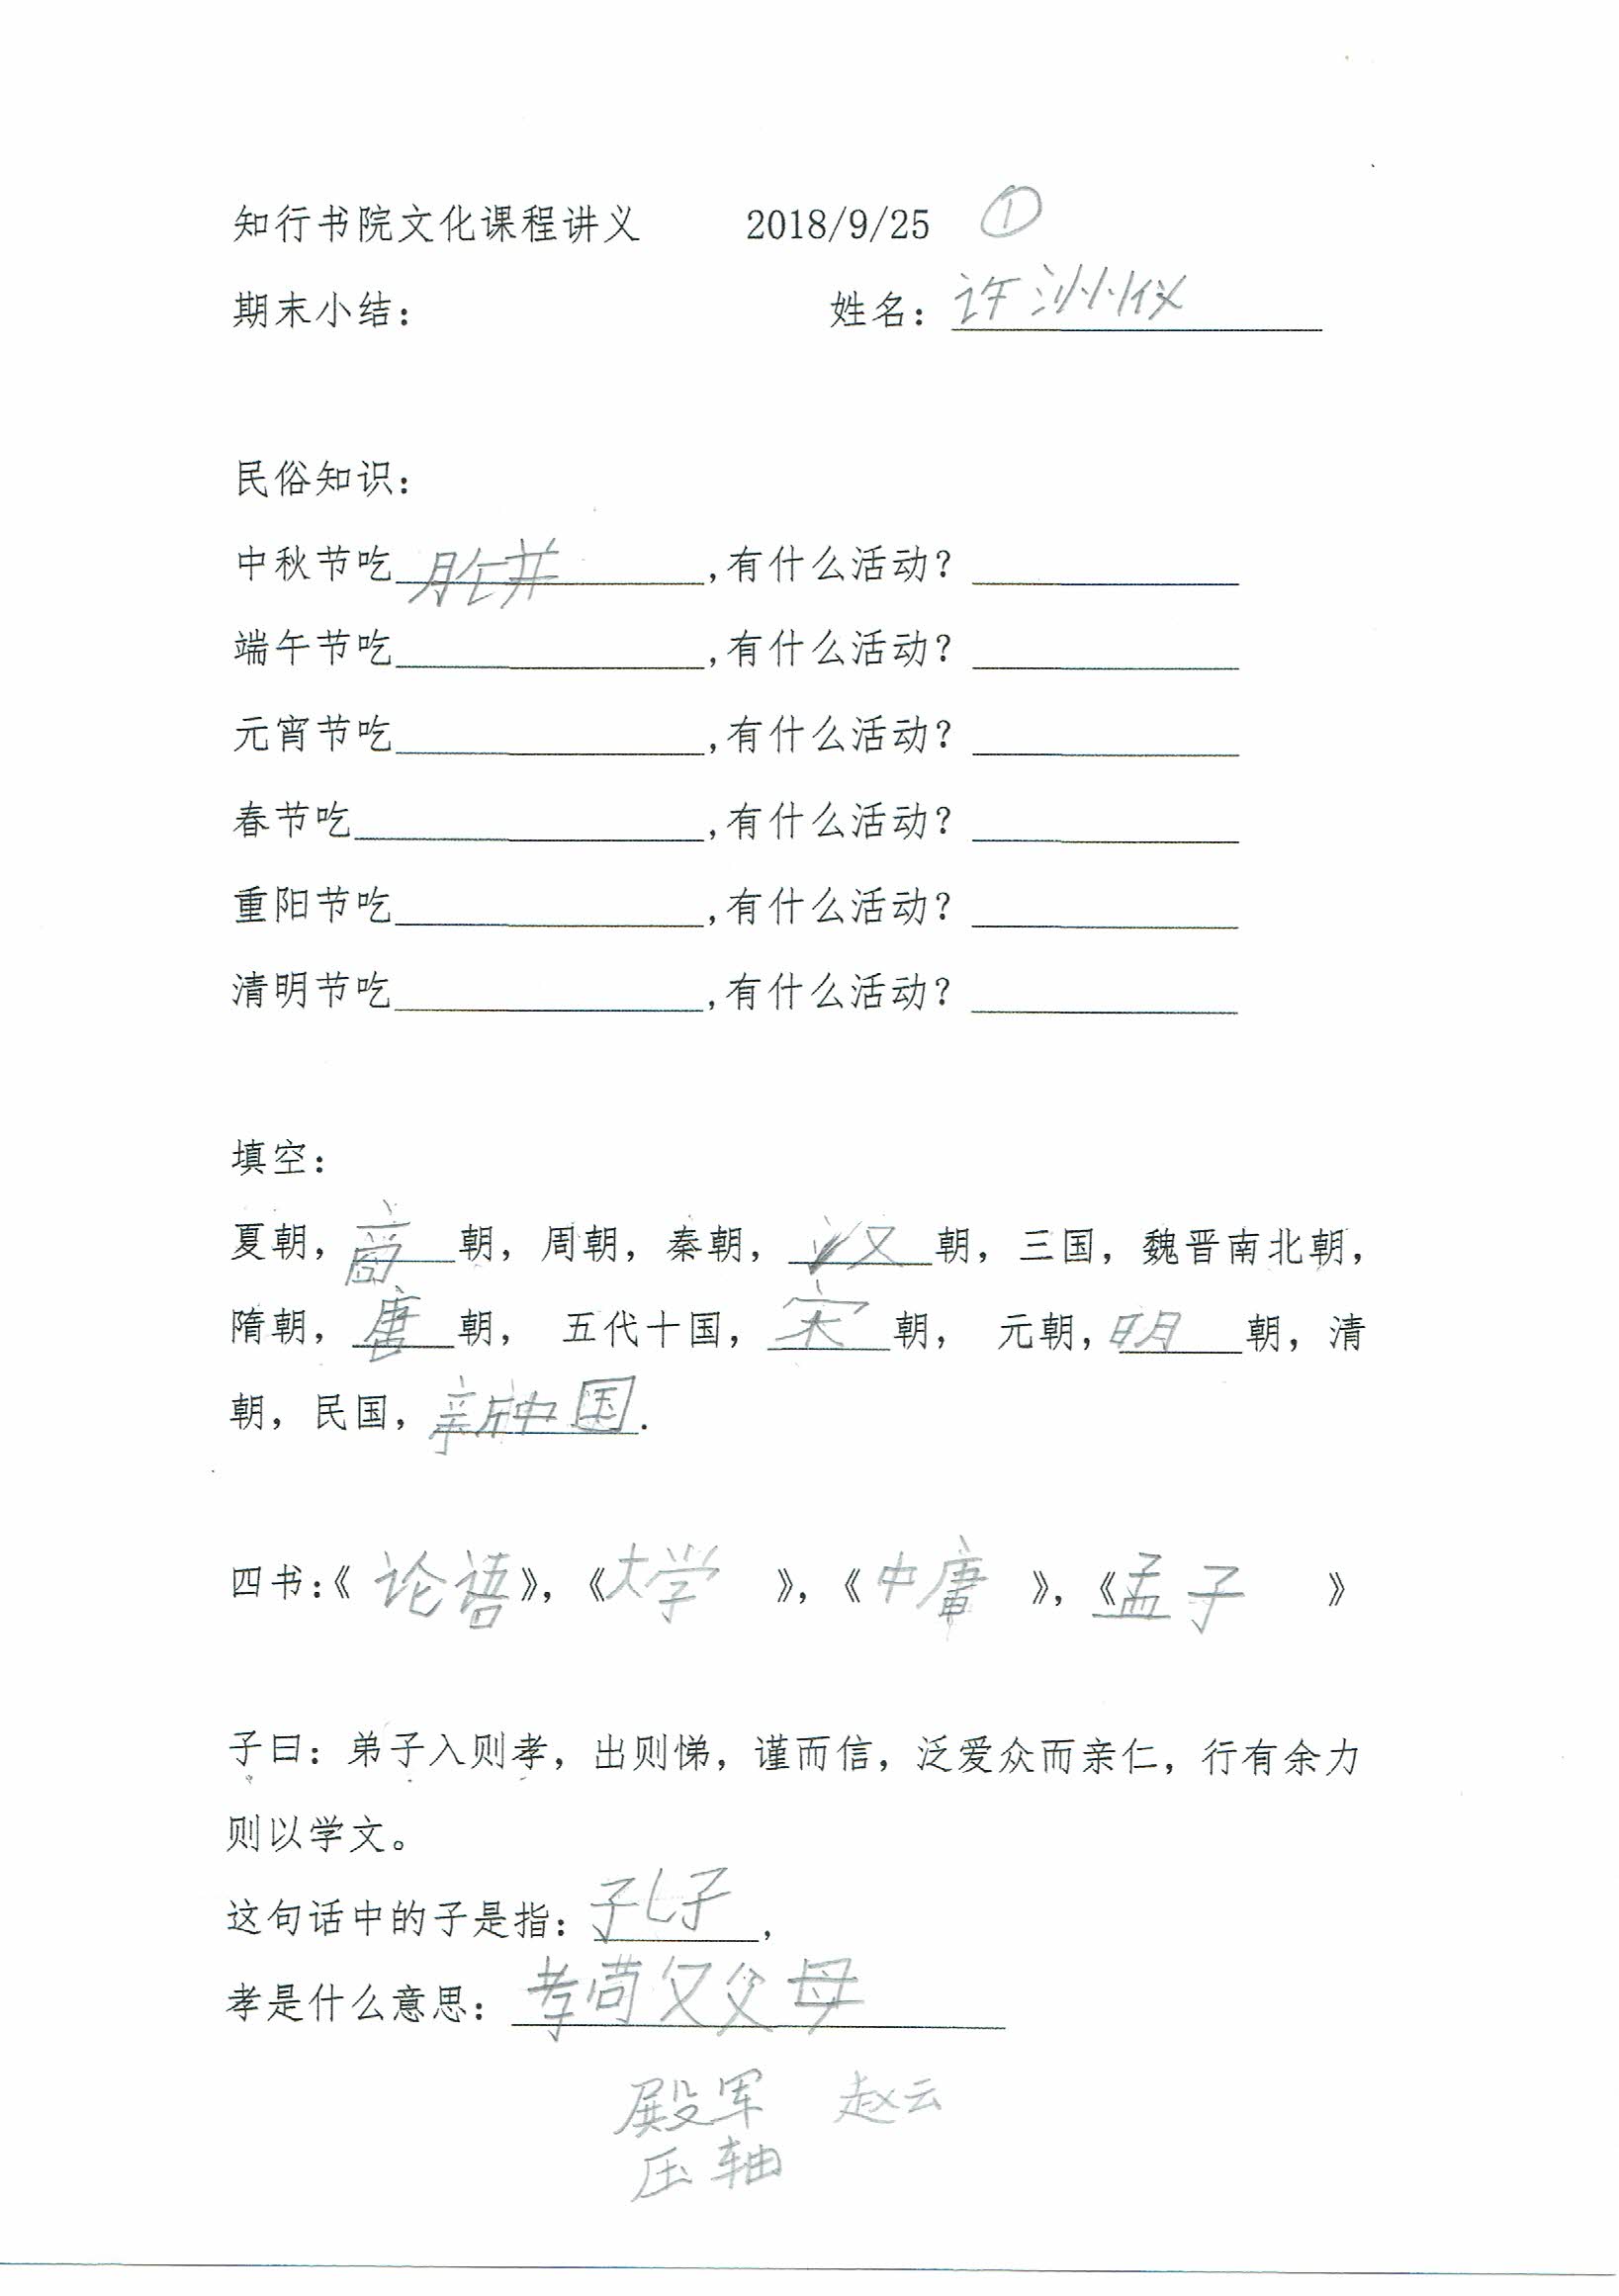 知行书院文化课程讲义 2018/9/25 ①
期末小结： 姓名：许洲仪
民俗知识：
中秋节吃____，有什么活动？____
端午节吃____，有什么活动？____
元宵节吃____，有什么活动？____
春节吃____，有什么活动？____
重阳节吃____，有什么活动？____
清明节吃____，有什么活动？____
填空：
夏朝，商朝，周朝，秦朝，汉朝，三国，魏晋南北朝，
隋朝，唐朝， 五代十国，宋朝， 元朝，明朝，清
朝，民国，新中国.
四书：《论语》，《大学》，《中庸》，《孟子》
子曰：弟子入则孝，出则悌，谨而信，泛爱众而亲仁，行有余力
则以学文。
这句话中的子是指：孔子，
孝是什么意思：孝父母
殿军 赵云
压轴